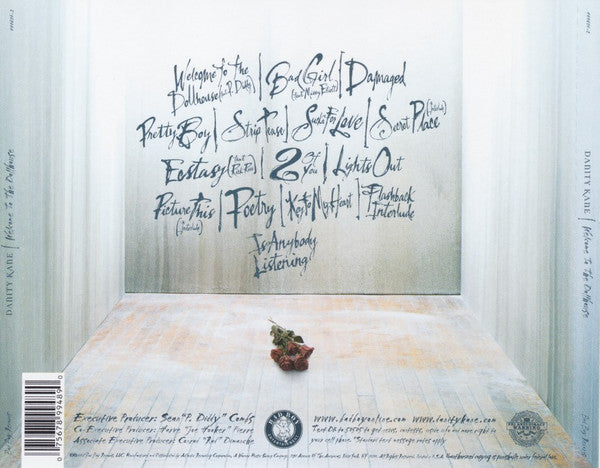 DANITY KANE | Welcome To The Dollhouse
Welcome to the Dollhouse (feat. P. Diddy) | Bad Girl (feat. Missy Elliott) | Damaged
Pretty Boy | Strip Tease | Sucka For Love | Secret Place (Interlude)
Ecstasy (feat. Rick Ross) | 2 Of You | Lights Out
Picture This (Interlude) | Poetry | Key To My Heart | Flashback Interlude
Is Anybody Listening
DANITY KANE | Welcome To The Dollhouse
0 75678 99489 6
Executive Producer: Sean "P. Diddy" Combs
Co-Executive Producer: Harve "Joe Hooker" Pierre
Associate Executive Producer: Conrad "Rad" Dimanche
BAD BOY
www.badboyonline.com www.danitykane.com